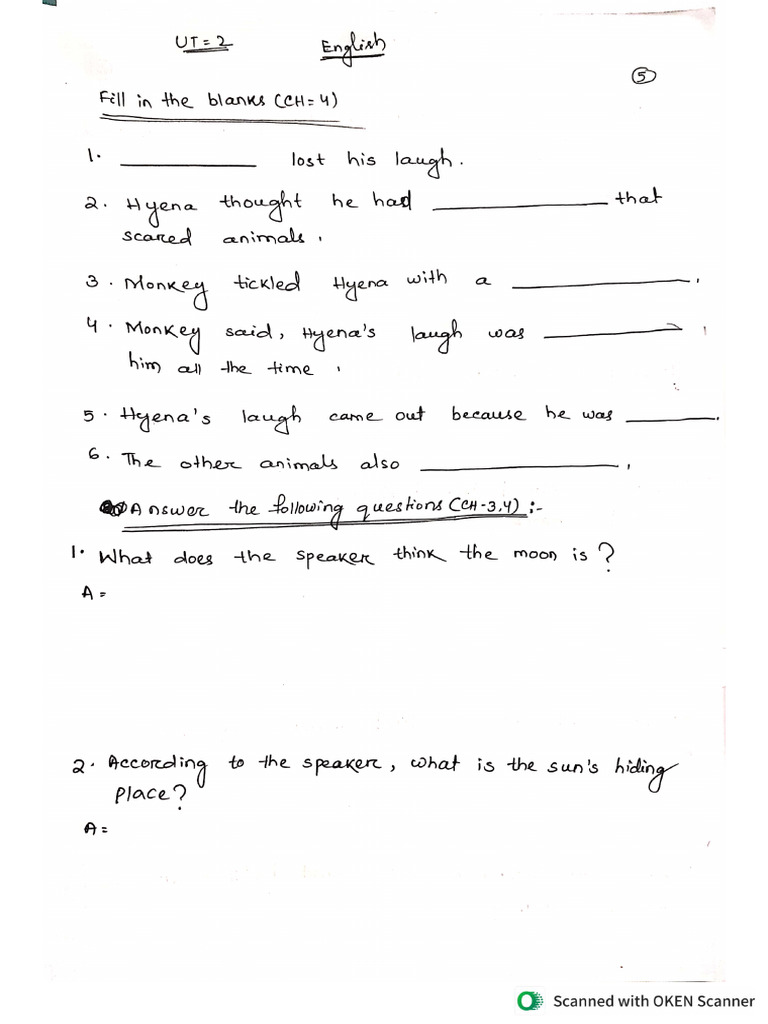 UT=2 English
5
Fill in the blanks (CH=4)
1. ____________ lost his laugh.
2. Hyena thought he had ____________ that
scared animals.
3. Monkey tickled Hyena with a ____________.
4. Monkey said, Hyena's laugh was ____________.
him all the time.
5. Hyena's laugh came out because he was ________.
6. The other animals also ____________.
Answer the following questions (CH-3,4) :-
1. What does the speaker think the moon is?
A =
2. According to the speaker, what is the sun's hiding
place?
A =
Scanned with OKEN Scanner